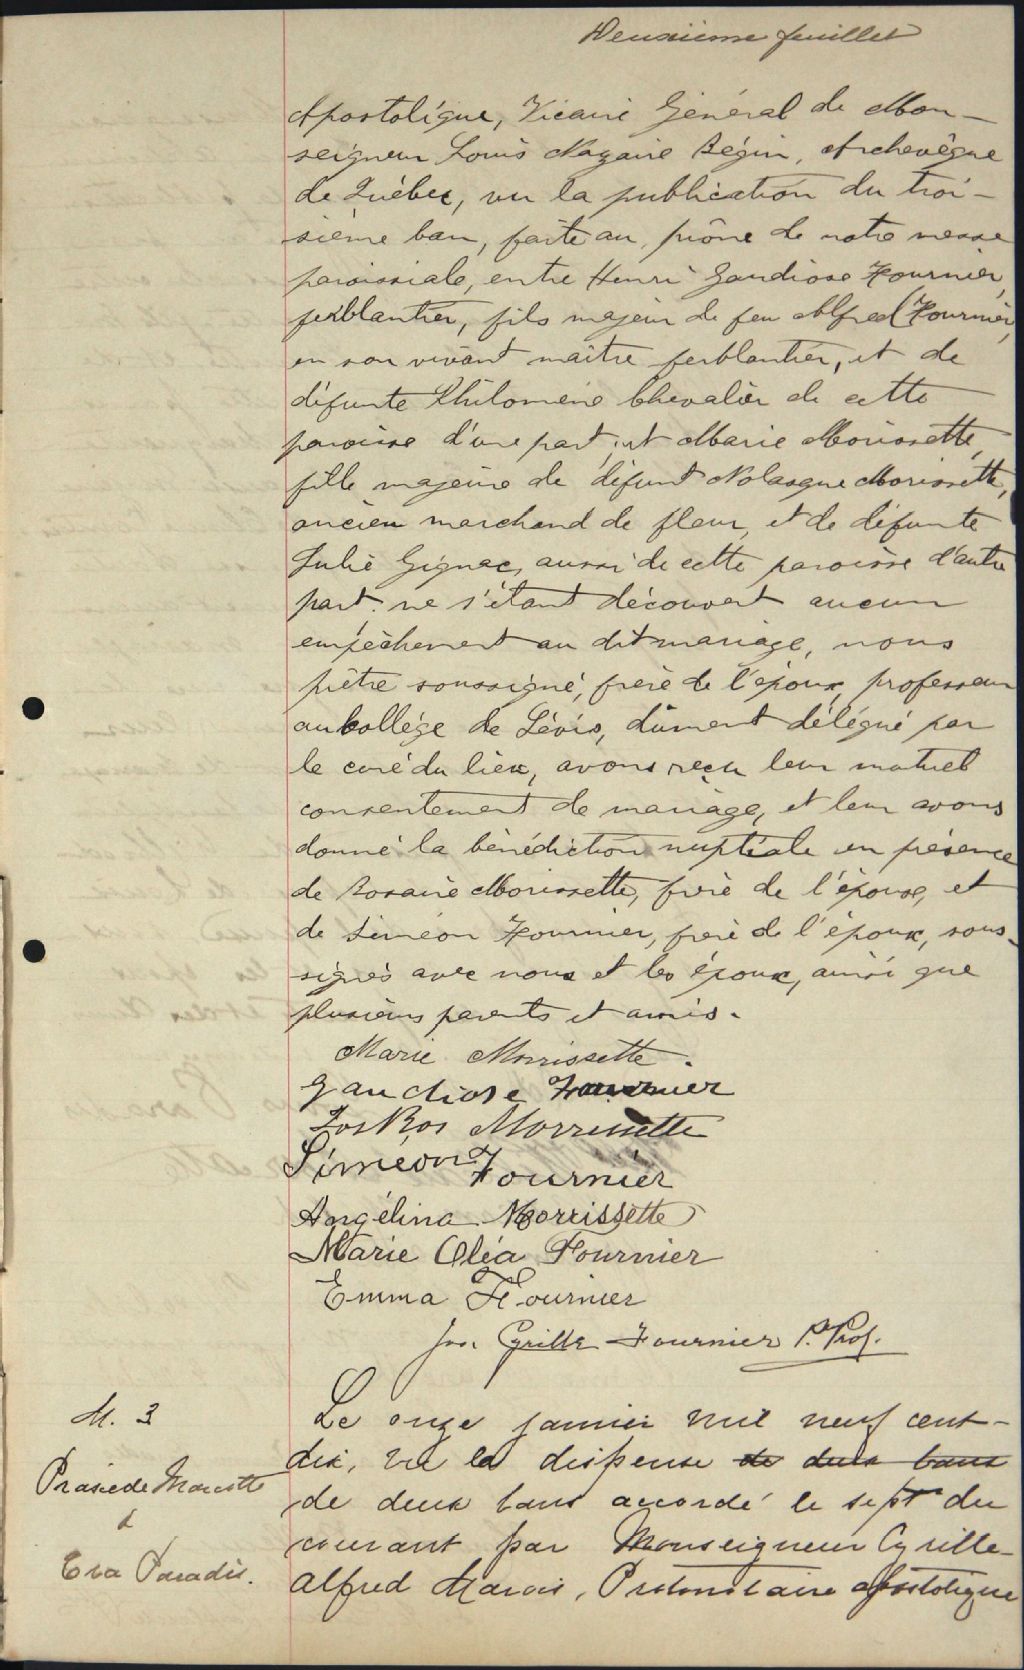 Deuxième feuillet
Apostolique, Vicaire Général de Mon-
seigneur Louis Nazaire Bégin, Archevêque
de Québec, vu la publication du troi-
sième ban, faite au prône de notre messe
paroissiale, entre Henri Gaudiose Fournier,
ferblantier, fils majeur de feu Alfred Fournier,
en son vivant maître ferblantier, et de
défunte Philomène Chevalier de cette
paroisse d'une part; et Marie Morissette,
fille majeure de défunt Nolasque Morissette,
ancien marchand de fleur, et de défunte
Julie Gignac, aussi de cette paroisse d'autre
part: ne s'étant découvert aucun
empêchement au dit mariage, nous
prêtre soussigné, frère de l'époux, professeur
au Collège de Lévis, dûment délégué par
le curé du lieu, avons reçu leur mutuel
consentement de mariage, et leur avons
donné la bénédiction nuptiale en présence
de Rosaire Morissette, frère de l'épouse, et
de Siméon Fournier, frère de l'époux, sous-
signés avec nous et les époux, ainsi que
plusieurs parents et amis.
Marie Morrissette.
Gaudiose Fournier
Jos Ros Morrissette
Siméon Fournier
Angélina Morrissette
Marie Oléa Fournier
Emma Fournier
Jos. Cyrille Fournier P. Prof.
M. 3
Praxede Marcotte
&
Eva Paradis.
Le onze janvier mil neuf cent-
dix, vu la dispense de deux bans
de deux bans accordé le sept du
courant par Monseigneur Cyrille-
Alfred Marois, Protonotaire apostolique